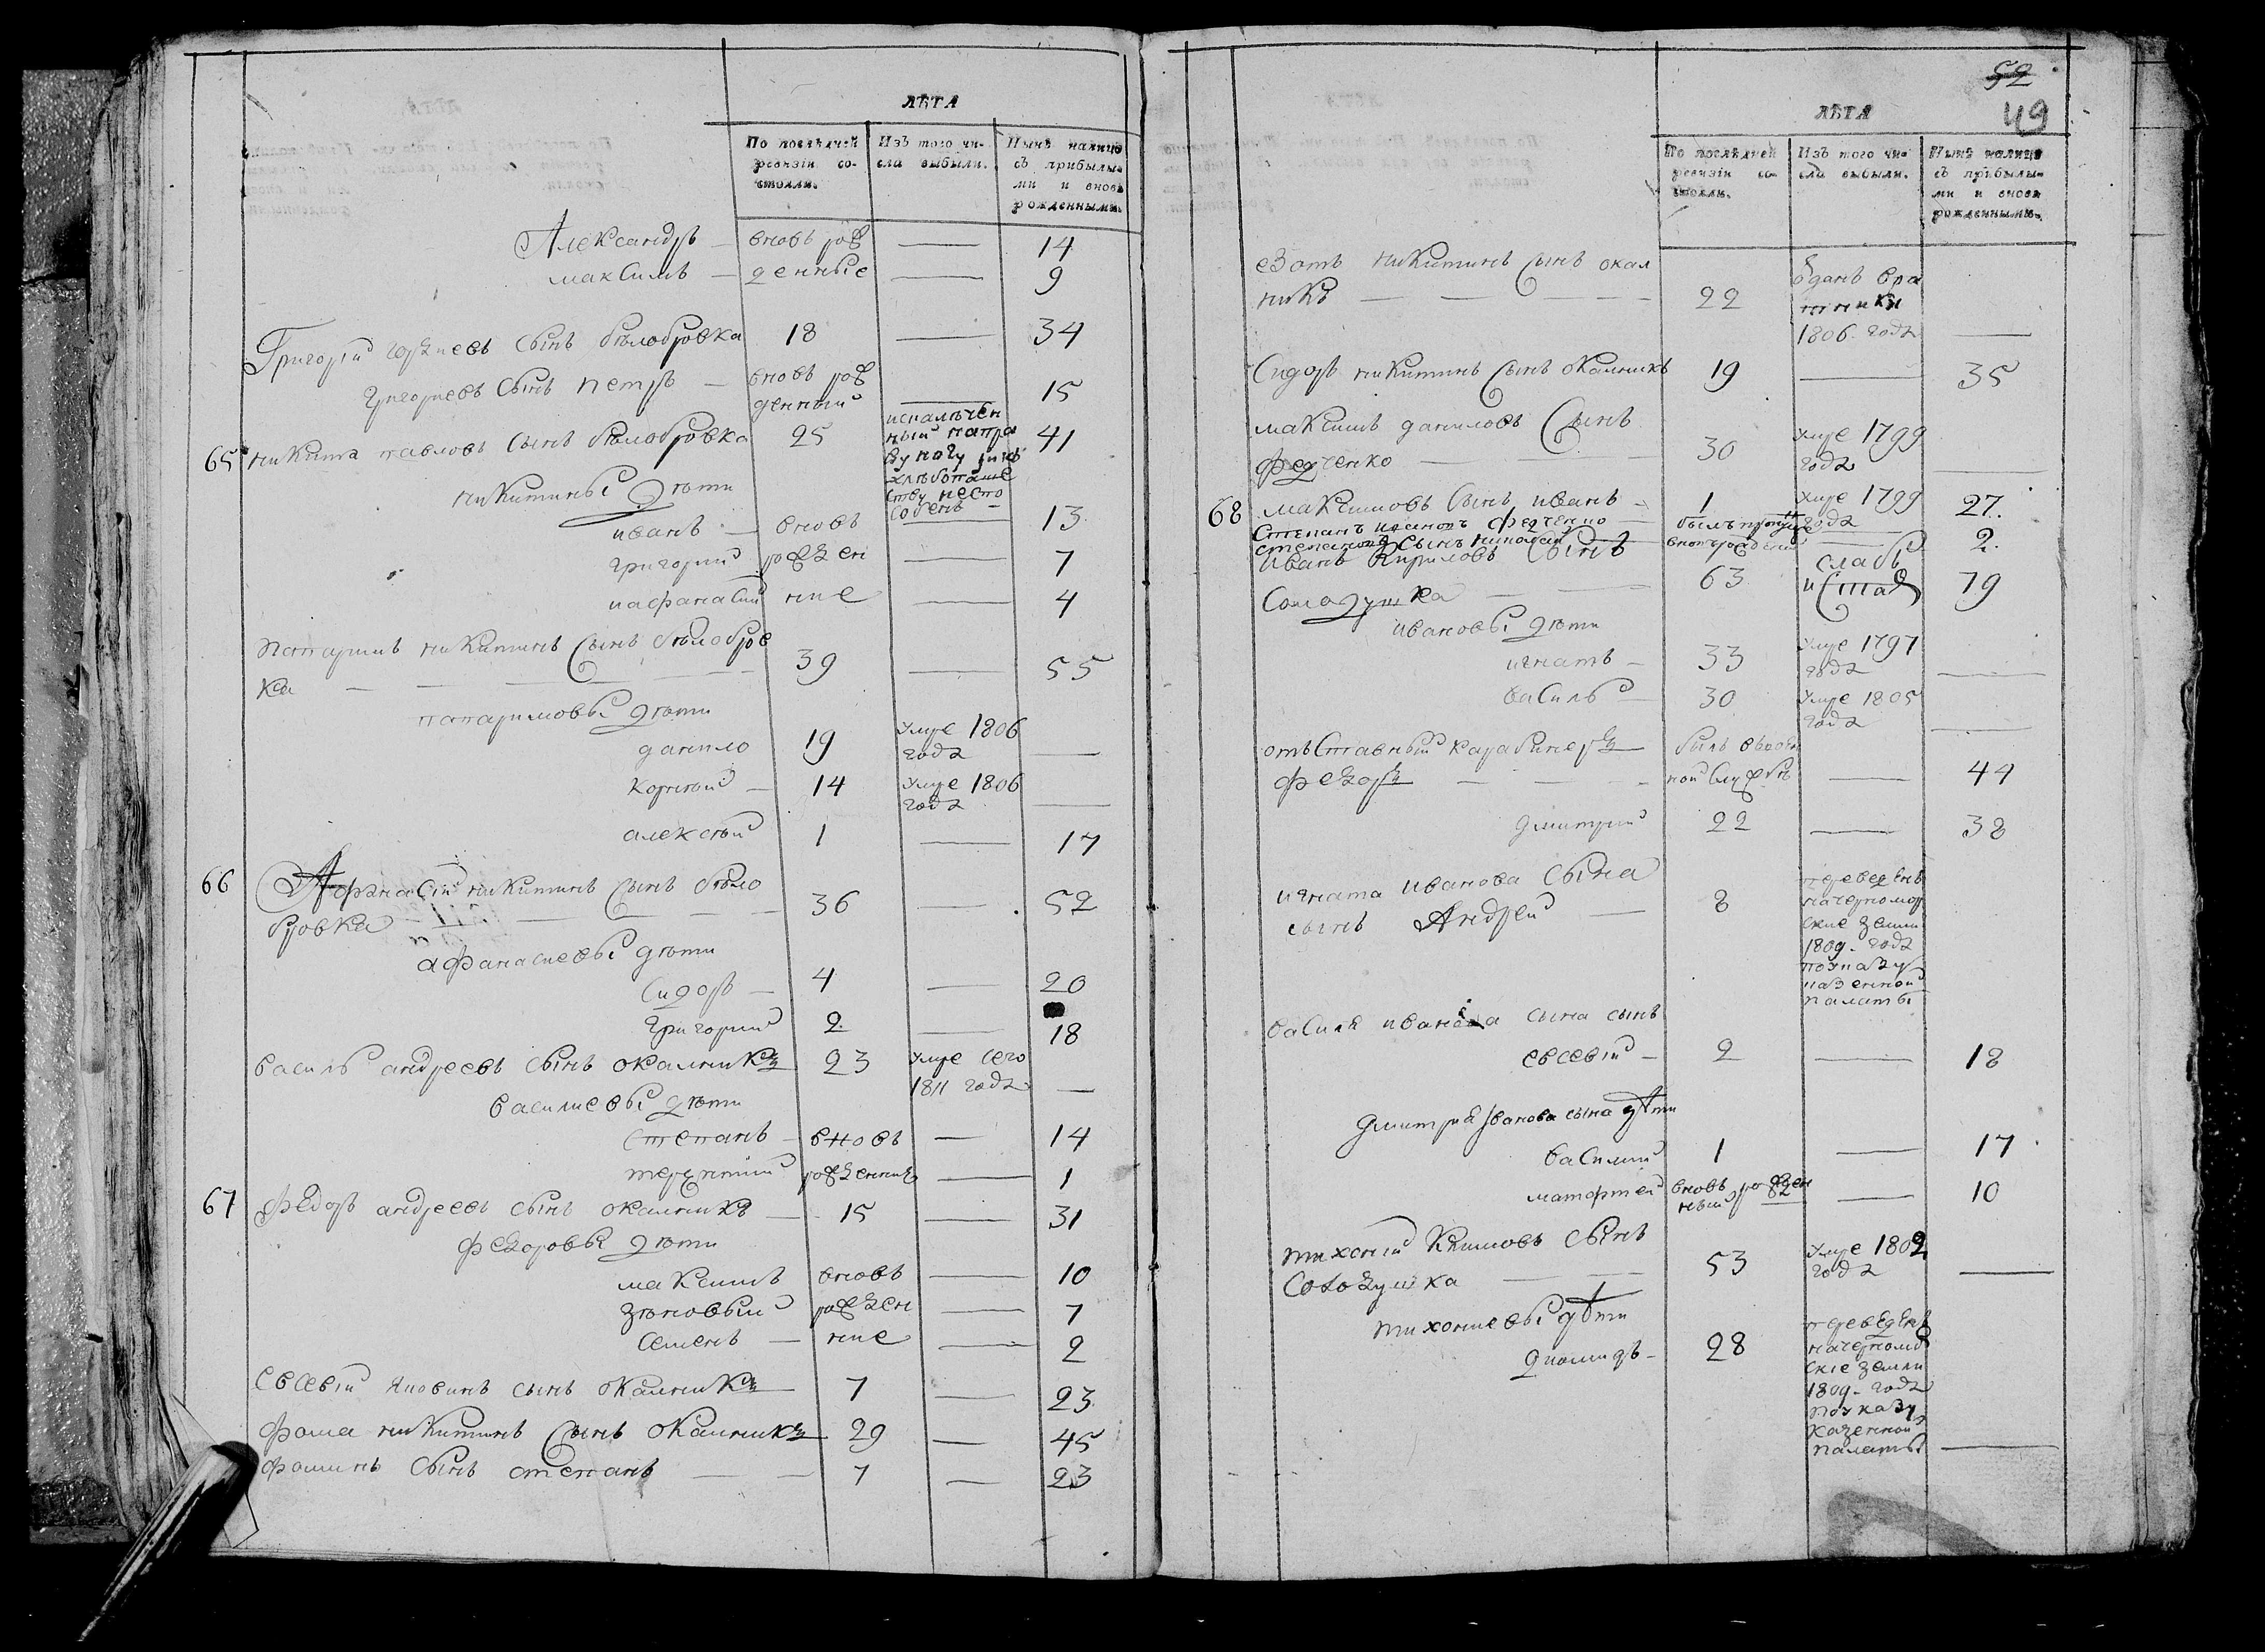 ЛѢТА
По послѣдней ревизіи со-
стояли.
Изъ того чи-
сла выбыли.
Нынѣ налицо
съ прибылы-
ми и вновь
рожденными.
Александръ — вновь рож — 14
максимъ — денные — 9
Григорій сынъ бѣлобровка 18 — 34
григориевъ сынъ петръ — вновь рож
денный — 15
65 никита павловъ сынъ бѣлобровка 25 41
ногу
хлѣбопаше
ству неспо
собенъ —
никитины дѣти
иванъ — вновь — 13
григорий рожден — 7
иафанасий ние — 4
никитинъ сынъ бѣлобров
ка — 39 — 55
дѣти
данило 19 умре 1806
года —
корнѣй — 14 умре 1806
года —
алексѣй 1 — 17
66 Афанасій никитинъ сынъ бѣло
бровка — 36 — 52
афанасиевы дѣти
сидоръ — 4 — 20
григорий 2. — 18
василь андреевъ сынъ окалникъ 23 умре сего
1811 года —
василиевы дѣти
степанъ — вновь — 14
терентий рожденние — 1
67 федоръ андреевъ сынъ окалникъ — 15 — 31
федоровы дѣти
максимъ вновь — 10
зѣновый рожден — 7
семенъ — ние — 2
евсевій сынъ окалникъ 7 — 23
фома никитинъ сынъ окалникъ 29 — 45
фоминъ сынъ степанъ — 7 — 23
52
49
ЛѢТА
По послѣдней
ревизіи со-
стояли.
Изъ того чи-
сла выбыли.
Нынѣ налицо
съ прибылы-
ми и вновь
рожденными.
изотъ никитинъ сынъ окал
никъ — 22
1806. года —
Сидоръ никитинъ сынъ окалникъ 19 — 35
максимъ даниловъ сынъ
федченко — 30 умре 1799
года —
68 максимовъ сынъ иванъ — 1 умре 1799
года 27.
Степанъ ивановъ федченко — былъ
степановъ сынъ николай вновьрожденій — 2.
иванъ кириловъ сынъ
солодушка — 63 слабъ
и старъ 79
ивановы дѣти
игнатъ — 33 умре 1797
года —
василь — 30 умре 1805
года —
отъставный карабинеръ
федоръ — былъ ввоен
ной службѣ — 44
дмитрий 22 — 38
игната иванова сына
сынъ Андрей — 8 переведенъ
начерномор
ские земли
1809. года
поуказу
казенной
палаты
василя иванова сына сынъ
евсевій — 2 — 18
дмитрия иванова сына дѣти
василий 1 — 17
матфей вновь рожден
ный — 10
тихоній климовъ сынъ
солодушка — 53 умре 1802
года —
тихониевы дѣти
диомидъ — 28 переведенъ
начерномор
ские земли
1809. года
поуказу
казенной
палаты —